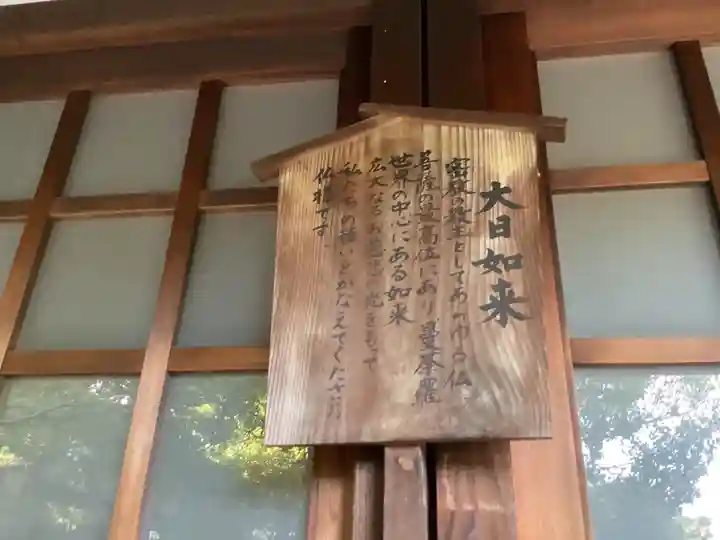 大日如来
密教の教主としてあらゆる仏、
菩薩の最高位にあり、曼荼羅
世界の中心にある如来
広大なるお慈悲の光をもって
私たちの願いをかなえてくださる
仏様です。